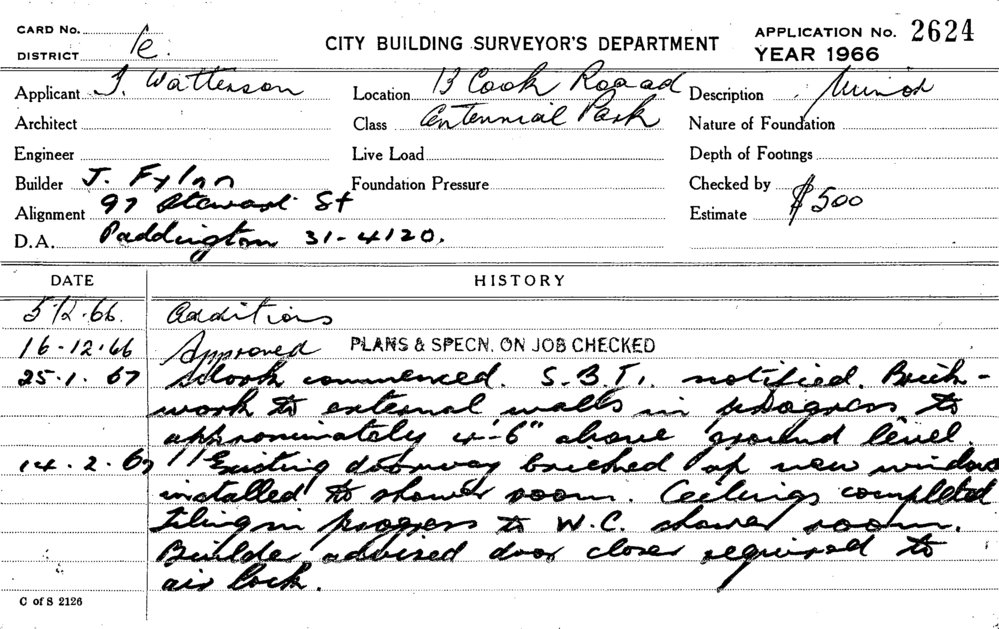 CARD No.
DISTRICT 1c.
CITY BUILDING SURVEYOR'S DEPARTMENT
APPLICATION No. 2624
YEAR 1966
Applicant J. Watterson
Location 13 Cook Roaad
Description Minor
Architect
Class Centennial Park
Nature of Foundation
Engineer
Live Load
Depth of Footings
Builder J. Fylnn
Foundation Pressure
Checked by
Alignment 97 Stewart St
Estimate $500
D.A. Paddington 31-4120.
DATE HISTORY
5/12.66. Additions
16-12.66 Approved PLANS & SPECN. ON JOB CHECKED
25.1.67 Work commenced. S.B.I. notified. Brick-
work to external walls in progress to
approximately 4'-6" above ground level.
14.2.67 Existing doorway bricked up new window
installed to shower room. Ceilings completed
tiling in progress to W.C. shower room.
Builder advised door closer required to
air lock.
C of S 2126